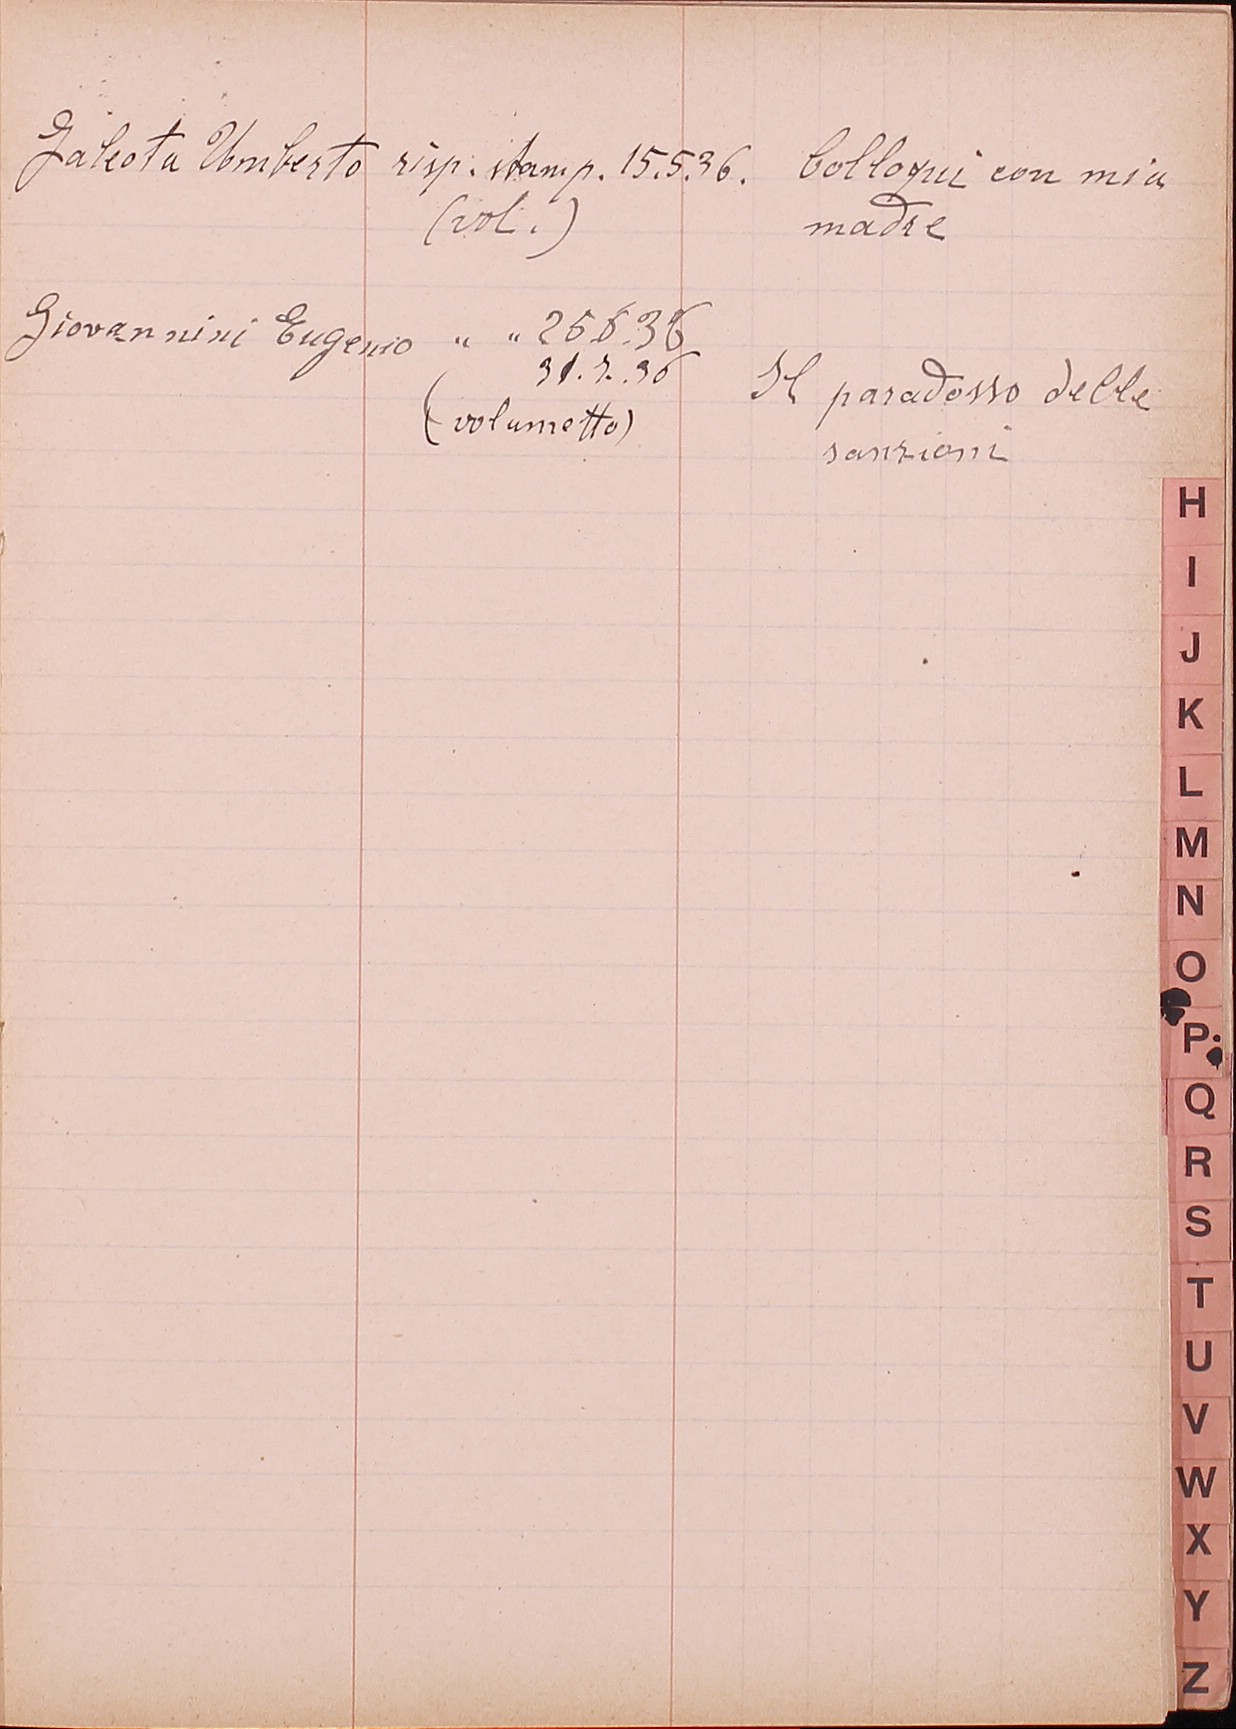 Galeota Umberto risp. stamp. 15.5.36. Colloqui con mia
(vol.) madre
Giovannini Eugenio " " 26 6.36
31.7.36 Il paradosso delle
(volumetto) sanzioni
H
I
J
K
L
M
N
O
P
Q
R
S
T
U
V
W
X
Y
Z